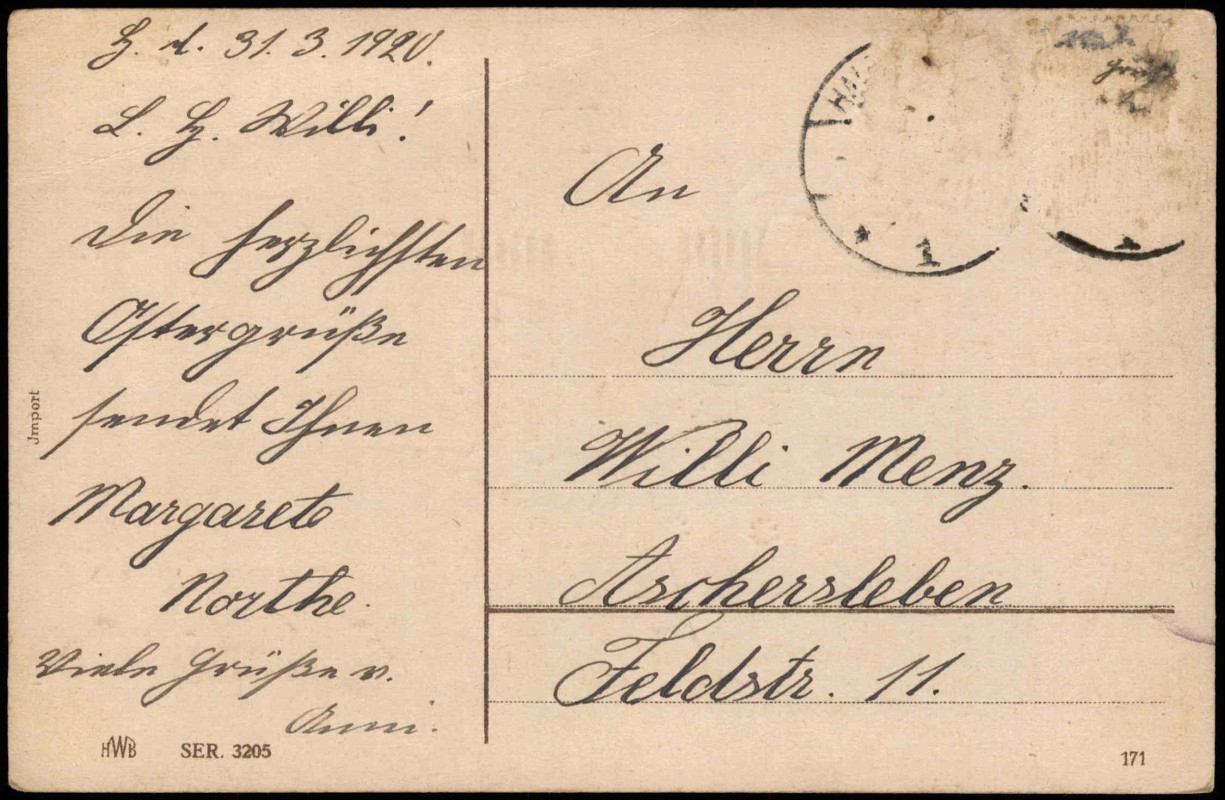 H. d. 31. 3. 1920.
L. H. Willi!
Die herzlichsten
Ostergrüße
sendet Ihnen
Margarete
Northe.
Viele Grüße v.
Anni.
An
Herrn
Willi Menz.
Aschersleben
Feldstr. 11.
* 1
Jmport
HWB SER. 3205
171